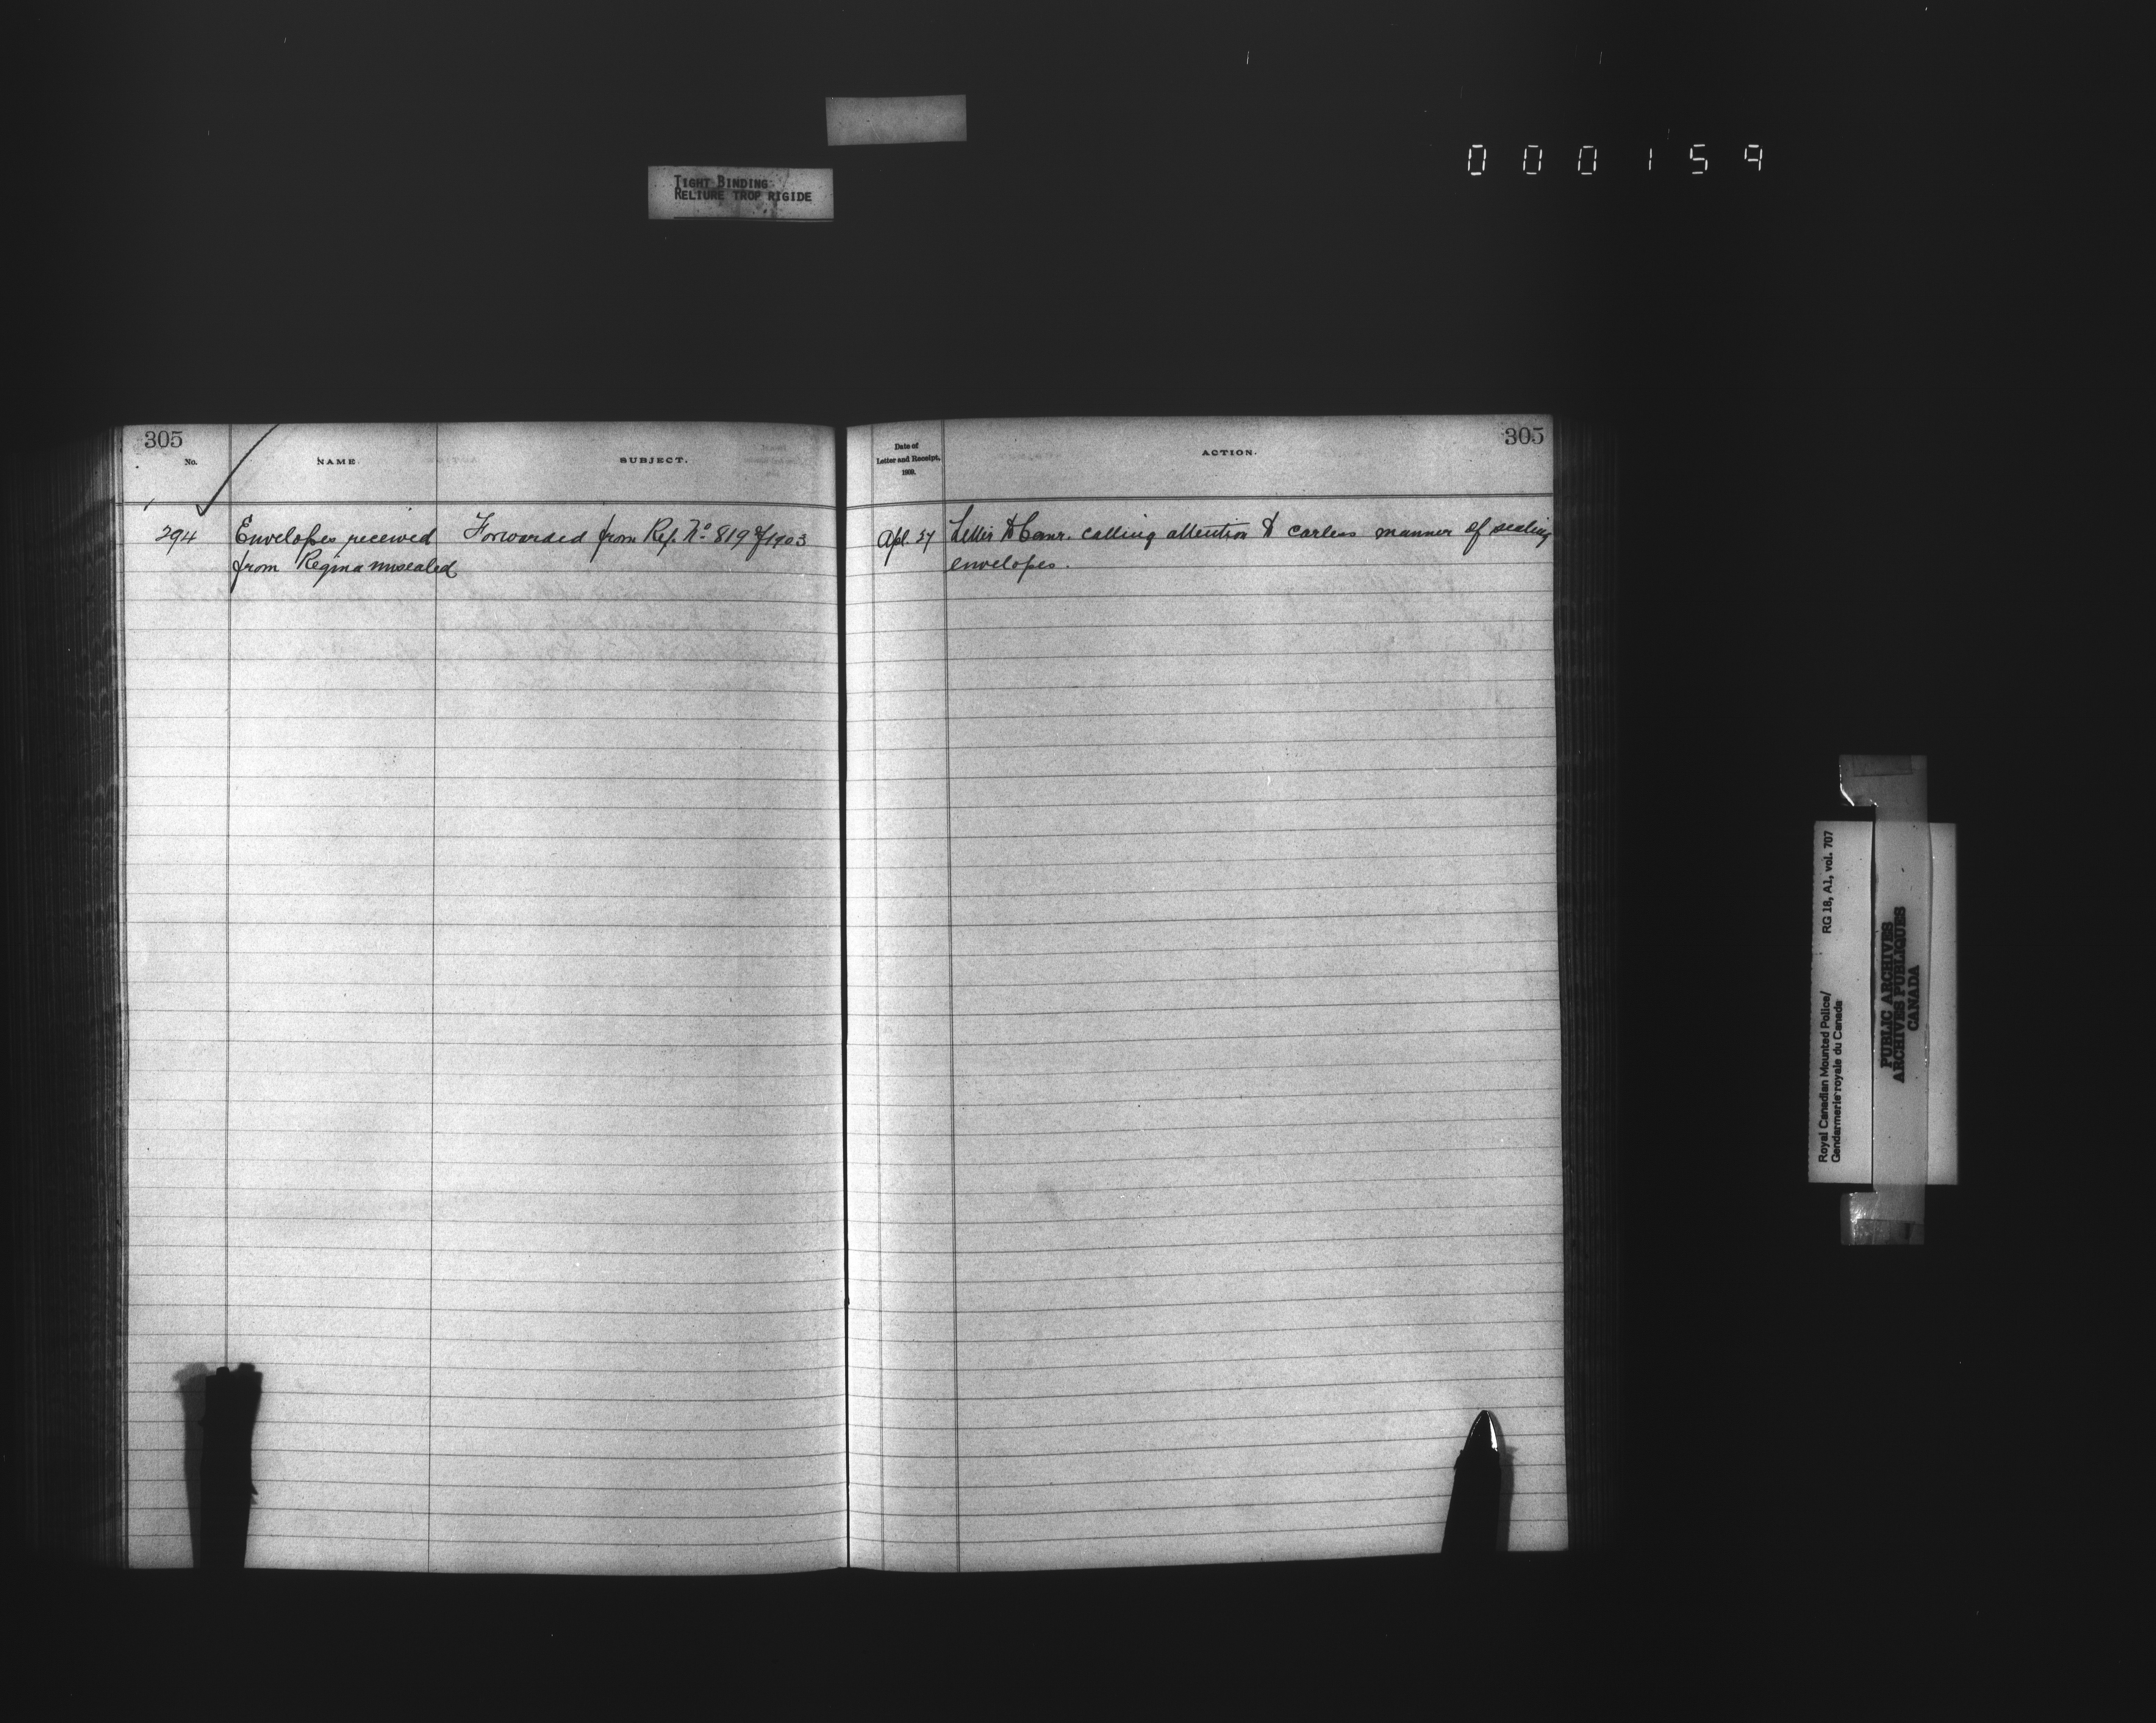 TIGHT BINDING
RELIURE TROP RIGIDE
000159
305
No.
NAME.
SUBJECT.
294
Envelopes received
from Regina unsealed
Forwarded from Ref. No. 819 of 1903
305
Date of
Letter and Receipt,
1909.
ACTION.
Apl. 27
Letter to Comr. calling attention to carless manner of sealing
envelopes.
Royal Canadian Mounted Police/
Gendarmerie royale du Canada
RG 18, A1, vol. 707
PUBLIC ARCHIVES
ARCHIVES PUBLIQUES
CANADA